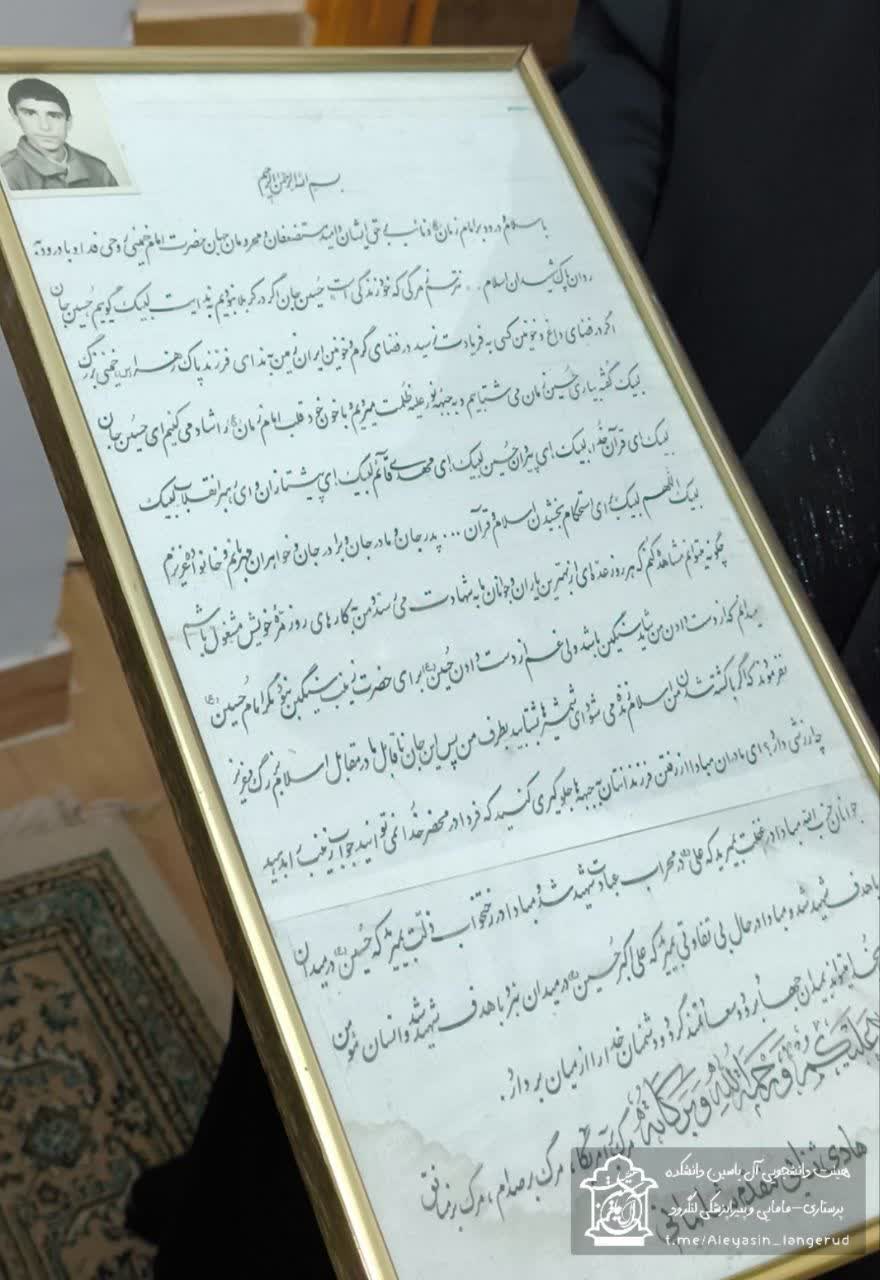 بسم الله الرحمن الرحیم
با سلام و درود بر امام زمان (عج) و نائب بر حقش ایشان و امید مستضعفان و محرومان جهان حضرت امام خمینی روحی فداه و با درود به
روان پاک شهیدان اسلام ... نترسم ز مرگی که خود زندگی است حسین جان اگر در کربلا نبودیم به ندایت لبیک گوییم حسین جان
اگر در فضای داغ و خونین کسی به فریادت نرسید در فضای گرم و خونین ایران زمین به ندای فرزند پاک زهرا (س) خمینی بزرگ
لبیک گفته بیاری حسین زمان می شتابیم و به جبهه نور علیه ظلمت میرویم و با خون خود قلب امام زمان (عج) را شاد می کنیم ای حسین جان
لبیک ای قرآن خدا، لبیک ای پیران حسین لبیک ای مهدی قائم لبیک ای پیشتازان و ای رهبر انقلاب لبیک
لبیک اللهم لبیک برای استحکام بخشیدن اسلام و قرآن ... پدر جان و مادر جان و برادر جان و خواهران مهربانم و خانواده عزیزم
چگونه میتوانم مشاهده کنم که هر روز عده ای از بهترین یاران و جوانان ما به شهادت می رسند و من به کارهای روزمره خویش مشغول باشم
میدانم که از دست دادن من شاید سنگین باشد ولی غم از دست دادن حسین (ع) برای حضرت زینب سنگین بود مگر امام حسین (ع)
نفرمودند که اگر با کشته شدن من اسلام زنده می شود ای شمشیرها بشتابید بطرف من پس این جان ناقابل ما در مقابل اسلام بزرگ و عزیز
چه ارزشی دارد؟ ای مادران مبادا از رفتن فرزندانتان به جبهه ها جلوگیری کنید که فردا در محضر خدا نمی توانید جواب زینب را بدهید
جوانان حزب الله مبادا در غفلت بمیرید که علی (ع) در محراب عبادت شهید شد و مبادا در رختخواب ذلت بمیرید که حسین (ع) در میدان
با هدف شهید شد و مبادا در حال بی تفاوتی بمیرید که علی اکبر حسین (ع) در میدان نبرد با هدف شهید شد و انسان مؤمن
میدان جهاد رود و سعادتمند گردد و دشمنان خدا را از میان بردارد.
علیکم و رحمة الله و برکاته
مرگ بر آمریکا، مرگ بر صدام، مرگ بر منافق
هادی
هیئت دانشجویی آل یاسین دانشکده
پرستاری-مامایی و پیراپزشکی لنگرود
t.me/Aleyasin_langerud